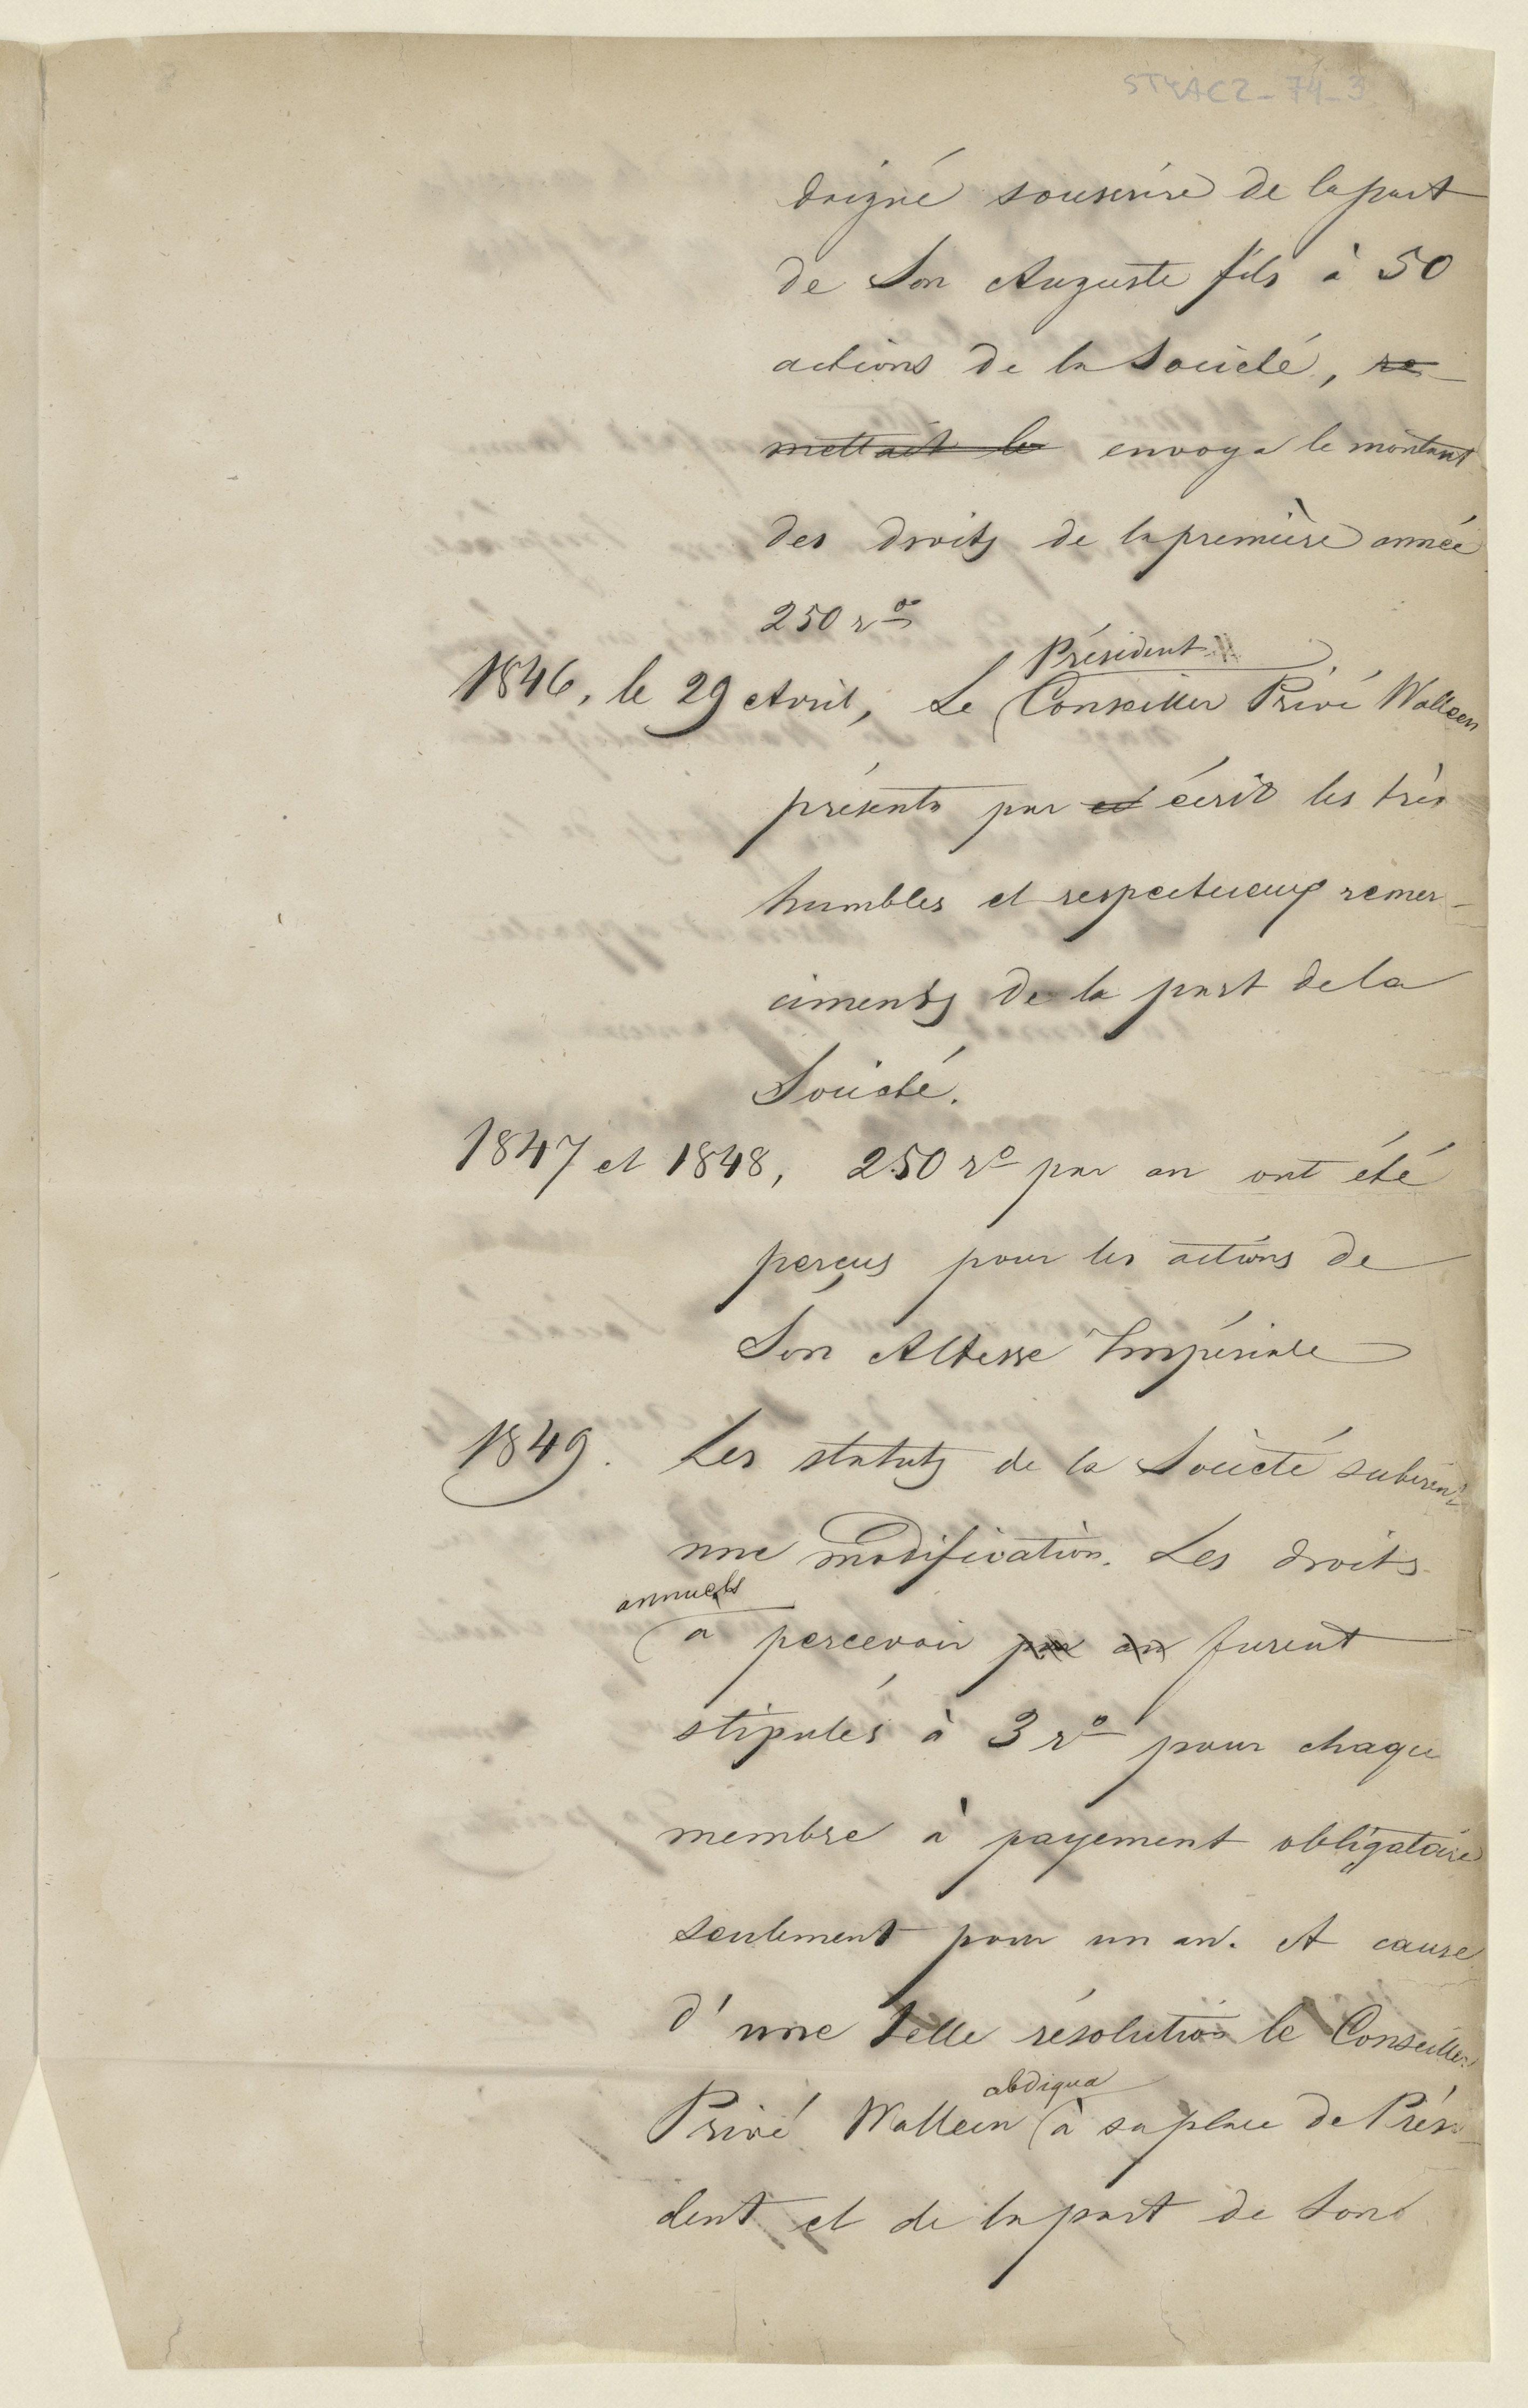 STYAC2_74_3
daigné souscrire de la part
de Son Auguste fils à 50
actions de la Société, re-
mettait le envoya le montant
des droits de la première année
250 ro
Président
1846, le 29 Avril, Le Conseiller Privé Walleen
présenta par éc écrit les très
humbles et respectueux remer-
ciments de la part de la
Société.
1847 et 1848, 250 ro par an ont été
perçus pour les actions de
Son Altesse Impériale
1849. Les statuts de la Société subirent
une modification. Les droits
annuels
a percevoir par an furent
stipulés à 3 ro pour chaque
membre à payement obligatoire
seulement pour un an. A cause
d'une telle résolution le Conseiller
abdiqua
Privé Walleen à sa place de Prési-
dent et de la part de Son